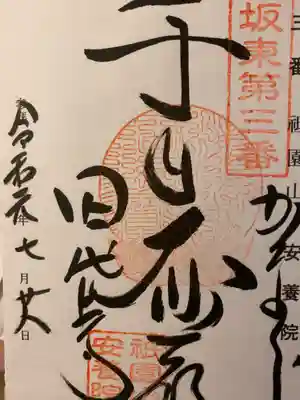 三番祇園山安養院
坂東第三番
かまくら
千手
田代寺
祇園
安養院
令和元年七月廿八日